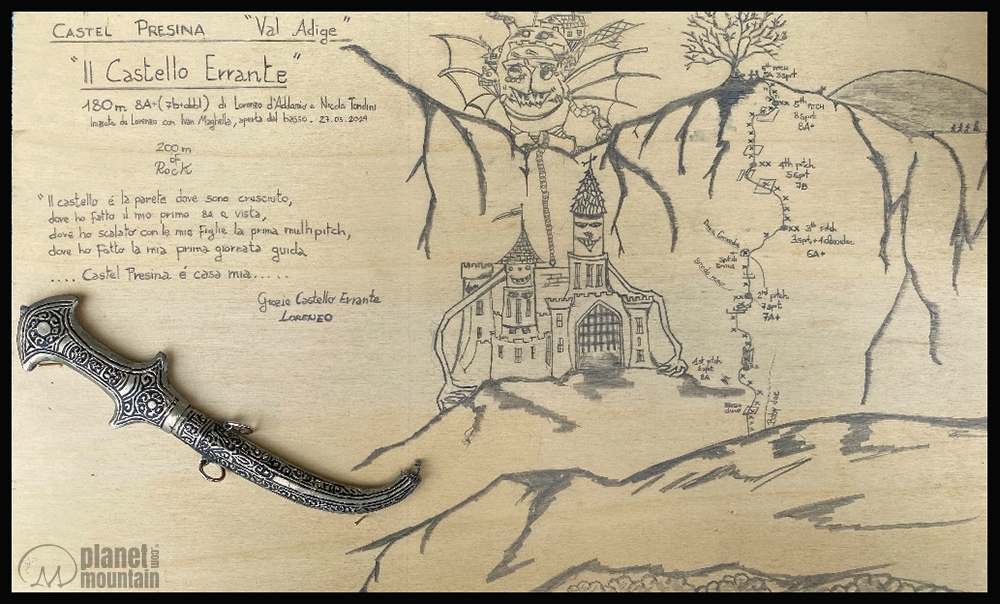 CASTEL PRESINA "Val Adige"
"Il Castello Errante"
180m 8A+ (7b+obbl) di Lorenzo d'Addario e Nicola Tondini
iniziata da Lorenzo con Ivan Maghella, aperta dal basso. 27.03.2024
200 m
of
Rock
"Il castello é la parete dove sono cresciuto,
dove ho fatto il mio primo 8a a vista,
dove ho scalato con le mie figlie la prima multipitch,
dove ho fatto la mia prima giornata guida
.... Castel Presina é casa mia......
Grazie Castello Errante
LORENZO
6th pitch
5A 3sprt
5th pitch
8sprt
8A+
4th pitch
5sprt
7B
3rd pitch
3sprt+1
6A+
2nd pitch
7sprt
7A+
1st pitch
8A
Baby
planet
mountain
.com